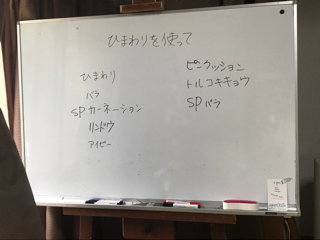 ひまわりを使って
ひまわり
バラ
SPカーネーション
リンドウ
アイビー
ピンクッション
トルコキキョウ
SPバラ